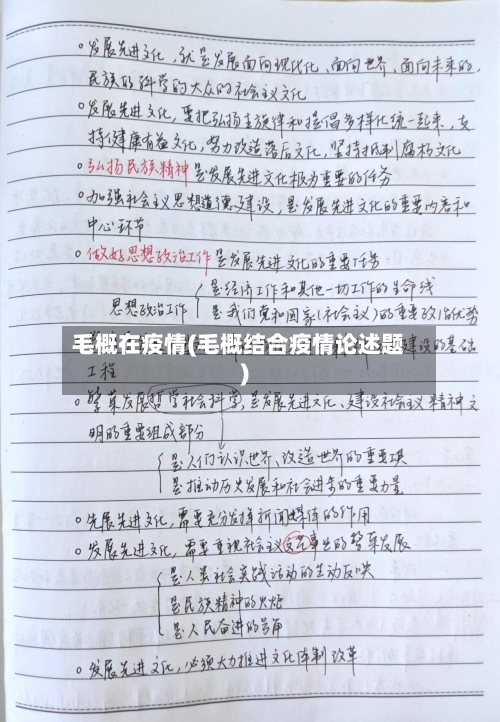 。发展先进文化,就是发展面向现代化、面向世界、面向未来的,
民族的科学的大众的社会主义文化
。发展先进文化,要把弘扬主旋律和提倡多样化统一起来,支
持健康有益文化,努力改造落后文化,坚持抵制腐朽文化
。弘扬民族精神是发展先进文化极为重要的任务
。加强社会主义思想道德建设,是发展先进文化的重要内容和
中心环节
。做好思想政治工作是发展先进文化的重要任务
思想政治工作
是经济工作和其他一切工作的生命线
是我们党和国家(社会主义)的重要政治优势
毛概在疫情(毛概结合疫情论述题
)
建设的基础
工程
。繁荣发展哲学社会科学,是发展先进文化、建设社会主义精神文
明的重要组成部分
是人们认识世界、改造世界的重要工具
是推动历史发展和社会进步的重要力量
。先展先进文化,需要充分发挥新闻媒体的作用
。发展先进文化,需要重视社会主义文艺事业的繁荣发展
是人类社会实践活动的生动反映
是民族精神的火炬
是人民奋进的号角
。发展先进文化,必须大力推进文化体制改革